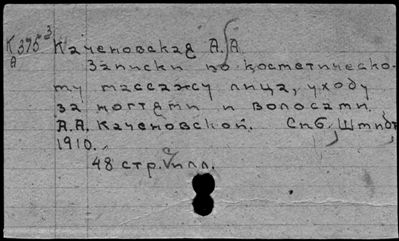 К 395³ Каченовская А. А.
А
Записки по косметическо-
му массажу лица, уходу
за ногтями и волосами.
А.А. Каченовской. Спб, Штибр
1910.
48 стр. с илл.